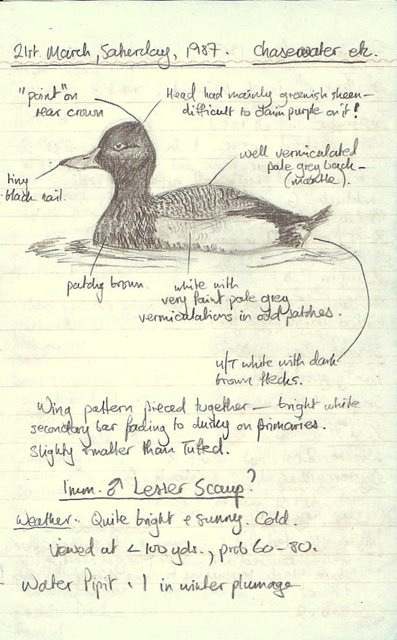 21st March, Saturday, 1987. Chasewater etc.
"point" on
rear crown
Head had mainly greenish sheen –
difficult to claim purple on it!
well vermiculated
pale grey back –
(mantle).
tiny
black nail.
patchy brown.
white with
very faint pale grey
vermiculations in odd patches.
U/T white with dark
brown flecks.
Wing pattern pieced together – bright white
secondary bar fading to dusky on primaries.
Slightly smaller than Tufted.
Imm. ♂ Lesser Scaup?
Weather. Quite bright & sunny. Cold.
Viewed at < 100 yds., prob 60 – 80.
Water Pipit. 1 in winter plumage